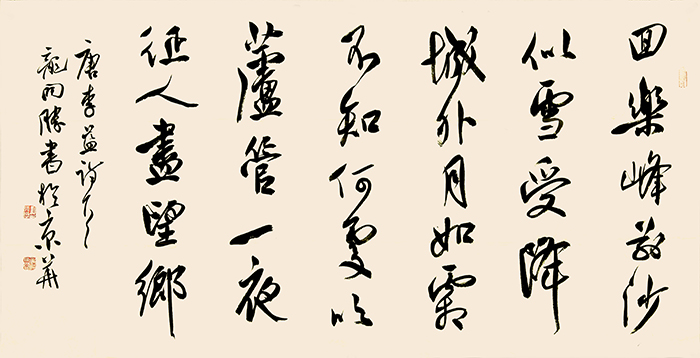 回樂峰前沙
似雪受降
城外月如霜
不知何處吹
蘆管一夜
征人盡望鄉
唐李益詩
龍開勝書於京華